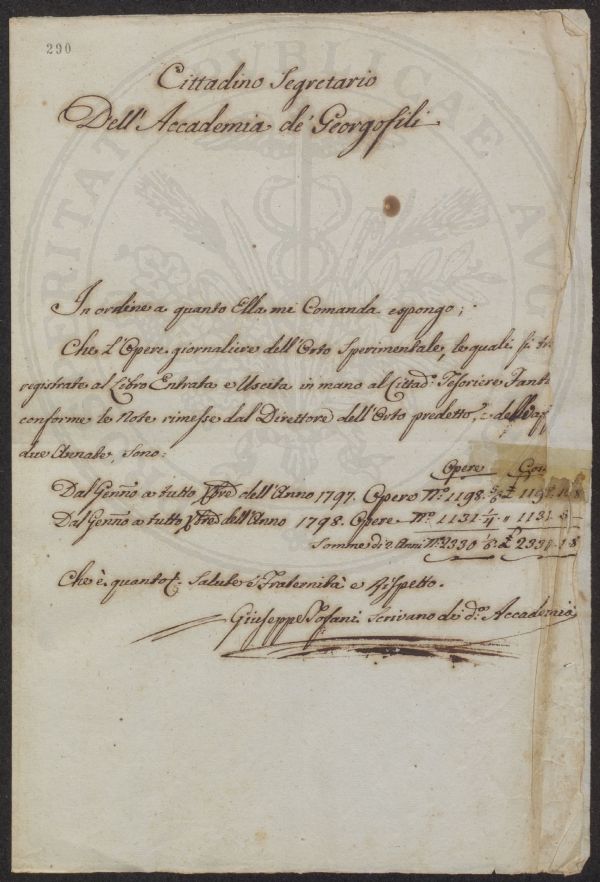 290
Cittadino Segretario
Dell'Accademia de' Georgofili
In ordine a quanto Ella mi Comanda espongo;
Che L'Opere giornaliere dell'Orto Sperimentale, le quali si
registrate al Libro Entrata e Uscita in mano al Cittad.º Tesoriere Fanti
conforme le Note rimesse dal Direttore dell'Orto predetto,
due Annate, sono:
Opere
Dal Genn͞o a tutto Xbre dell'Anno 1797. Opere Nº. 1198.
Dal Genn͞o a tutto Xbre dell'Anno 1798. Opere Nº. 1131 1/4 " 1131
Somme di 2 Anni Nº. 2330
Che è quanto Salute e Fraternità e Rispetto.
Giuseppe Tofani Scrivano di d.ª Accademia
PROSPERITATI PUBLICAE AUG